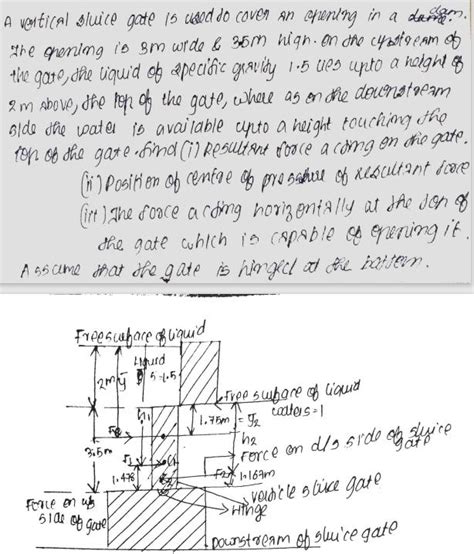 A vertical sluice gate is used to cover an opening in a dam.
The opening is 3m wide & 3.5m high. On the upstream of
the gate, the liquid of specific gravity 1.5 lies upto a height of
2m above, the top of the gate, where as on the downstream
side the water is available upto a height touching the
top of the gate. Find (i) Resultant force acting on the gate.
(ii) Position of centre of pressure of resultant force
(iii) The force acting horizontally at the top of
the gate which is capable of opening it.
Assume that the gate is hinged at the bottom.
Free surface of liquid
Liquid
S=1.5
2m
Free surface of liquid
water s=1
1.75m
h1
h2
Force on d/s side of sluice gate
3.5m
F1
1.478
F2
1.167m
Force on u/s side of gate
Hinge
Downstream of sluice gate